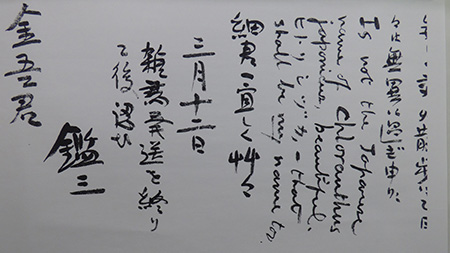 Is not the Japanese
name of Chloranthus
japonicus, beautiful.
ヒトリシヅカ, – that
shall be my name too.
細君へ宜しく 艸々
三月十二日
雑誌発送を終り
て後認む
鑑三
金吾君